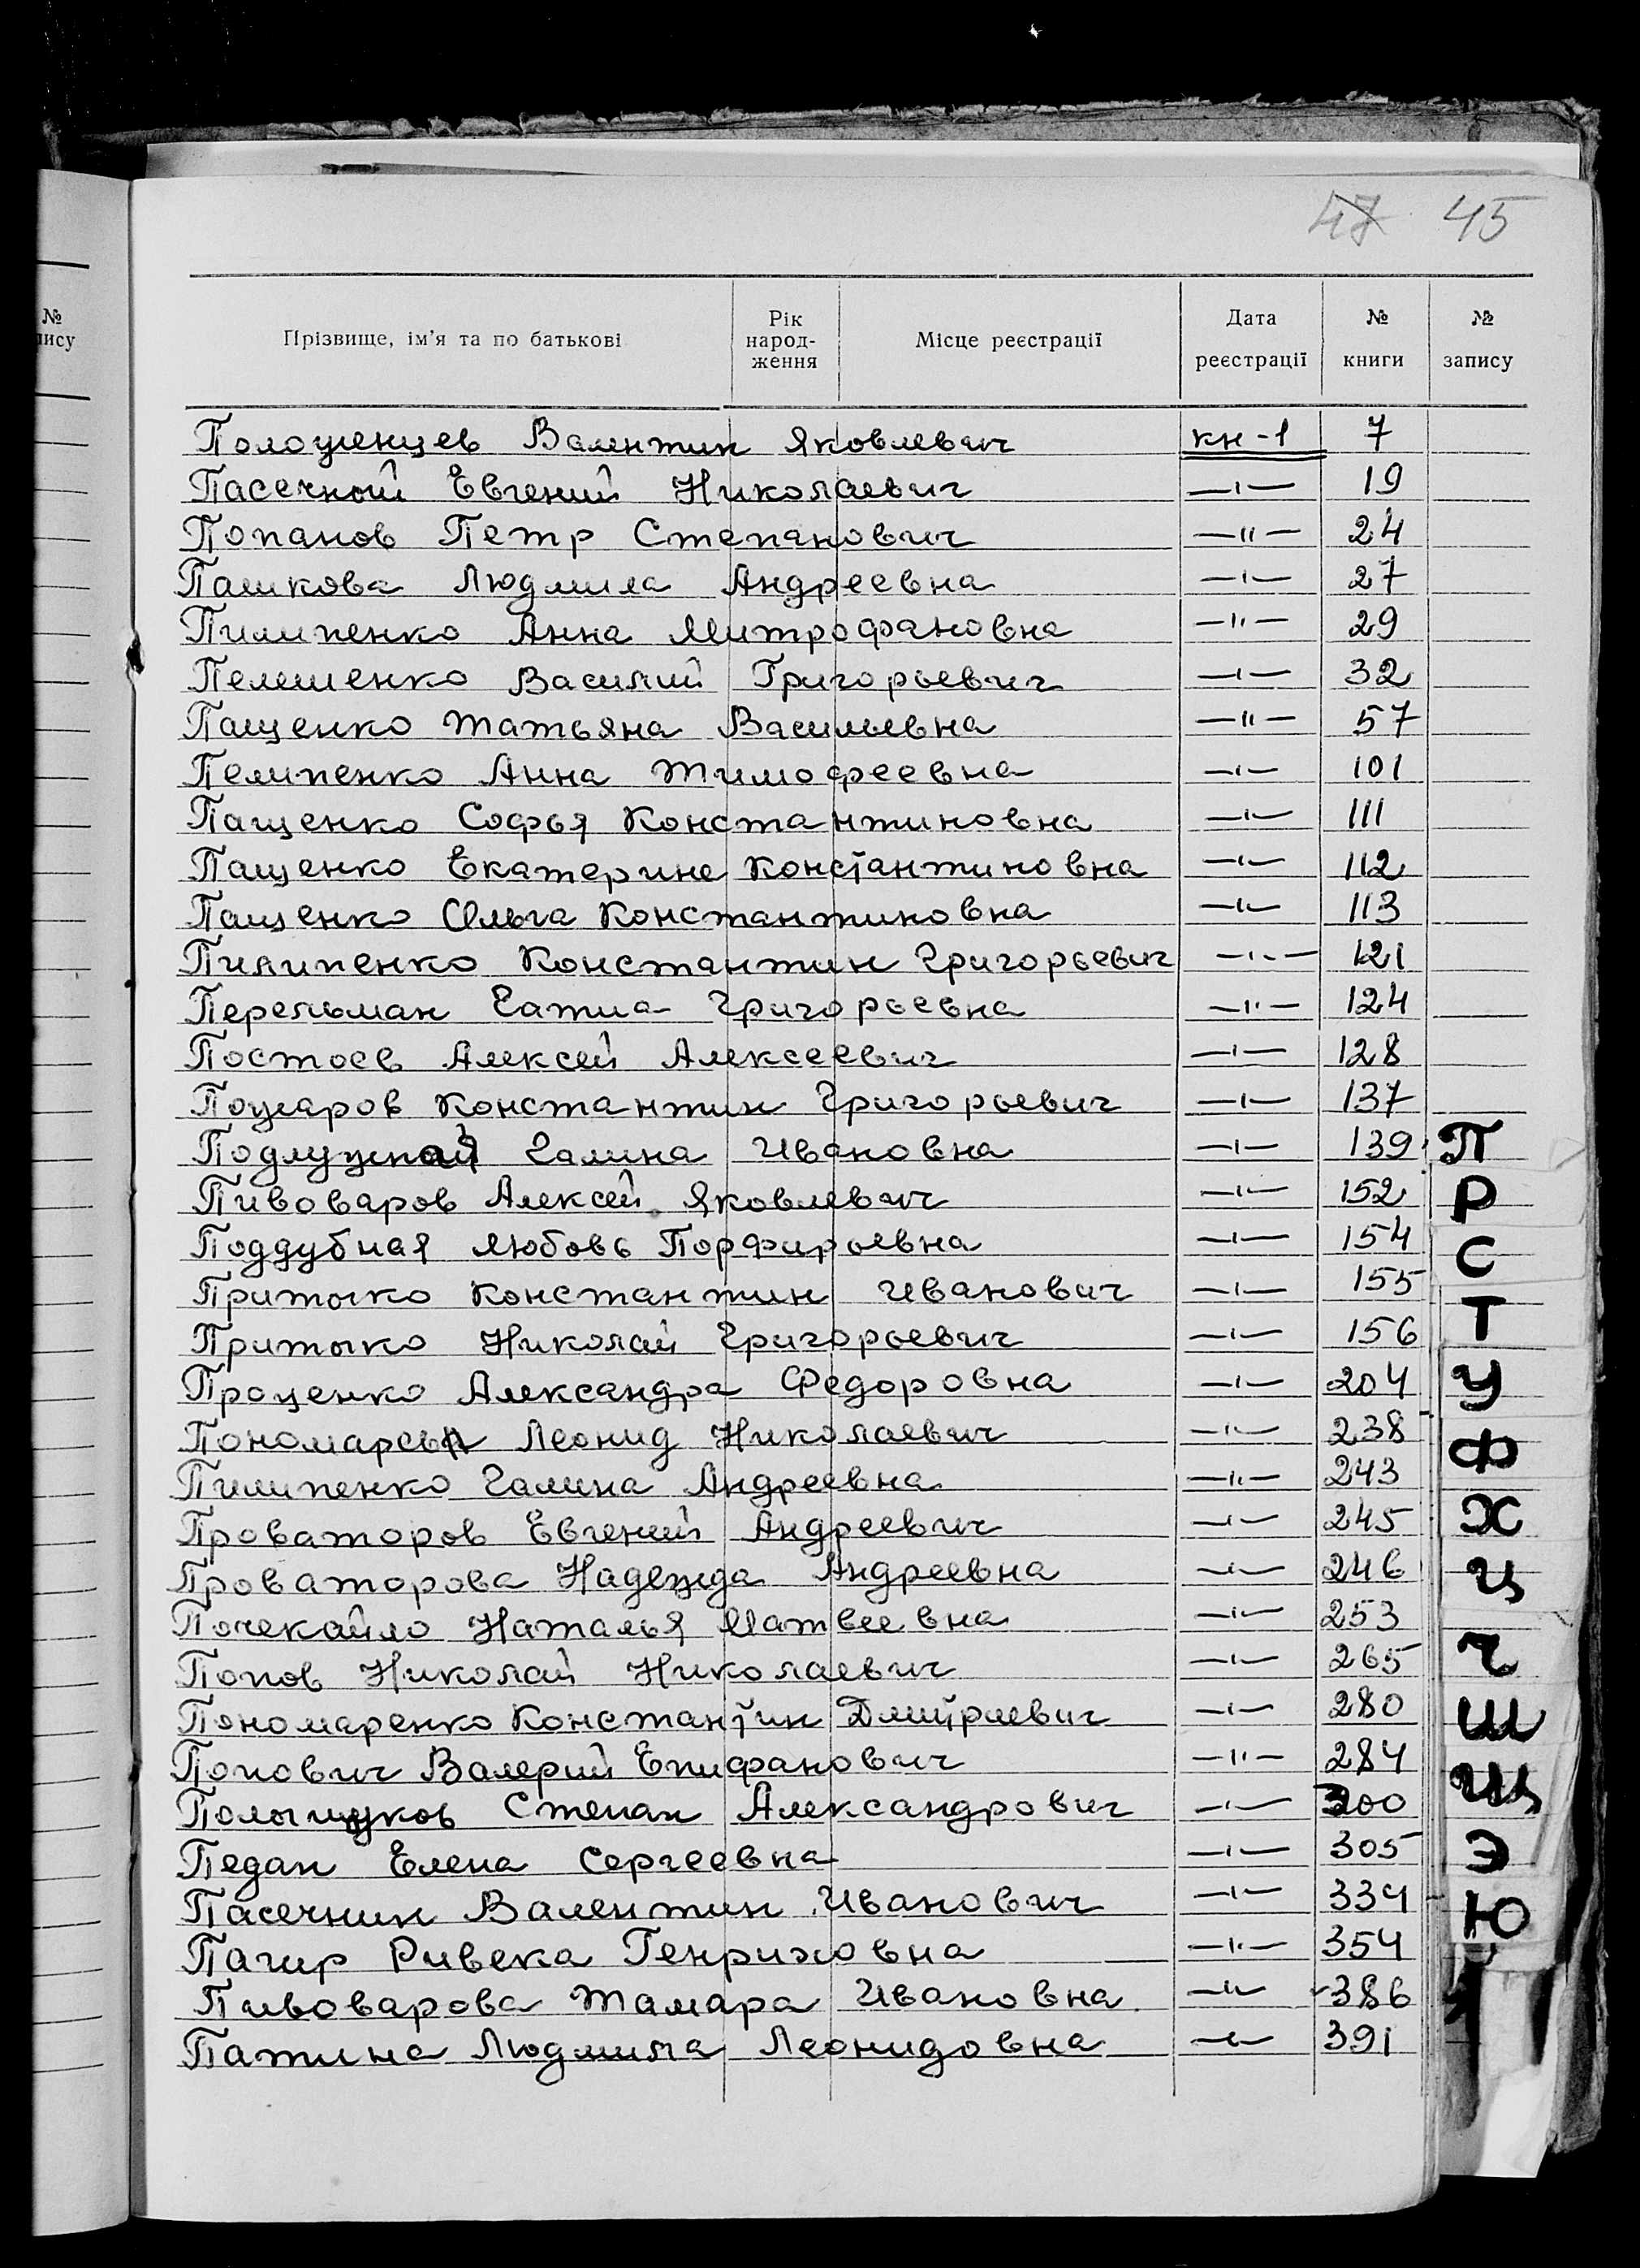 47 45
Прізвище, ім'я та по батькові Рік народ-ження Місце реєстрації Дата реєстрації № книги № запису
№ пису
Положенцев Валентин Яковлевич кн-1 7
Пасечной Евгений Николаевич —"— 19
Попанов Петр Степанович —"— 24
Пашкова Людмила Андреевна —"— 27
Пилипенко Анна Митрофановна —"— 29
Пелешенко Василий Григорьевич —"— 32
Пащенко Татьяна Васильевна —"— 57
Пелипенко Анна Тимофеевна —"— 101
Пащенко Софья Константиновна —"— 111
Пащенко Екатерина Константиновна —"— 112
Пащенко Ольга Константиновна —"— 113
Пилипенко Константин Григорьевич —"— 121
Перельман Григорьевна —"— 124
Постоев Алексей Алексеевич —"— 128
Пожаров Константин Григорьевич —"— 137
Галина Ивановна —"— 139 П
Пивоваров Алексей Яковлевич —"— 152 Р
Поддубная Любовь Порфирьевна —"— 154 С
Притыко Константин Иванович —"— 155
Притыко Николай Григорьевич —"— 156 Т
Проценко Александра Федоровна —"— 204 У
Леонид Николаевич —"— 238 Ф
Пилипенко Галина Андреевна —"— 243
Проваторов Евгений Андреевич —"— 245 Х
Проваторова Надежда Андреевна —"— 246 Ц
Почекайло Наталья Матвеевна —"— 253
Попов Николай Николаевич —"— 265 Ч
Пономаренко Константин Дмитриевич —"— 280 Ш
Попович Валерий Епифанович —"— 284
Степан Александрович —"— 300 Щ
Педан Елена Сергеевна —"— 305 Э
Пасечник Валентин Иванович —"— 334 Ю
Пагир Ривека Генриховна —"— 354
Пивоварова Тамара Ивановна —"— 386
Патина Людмила Леонидовна —"— 391